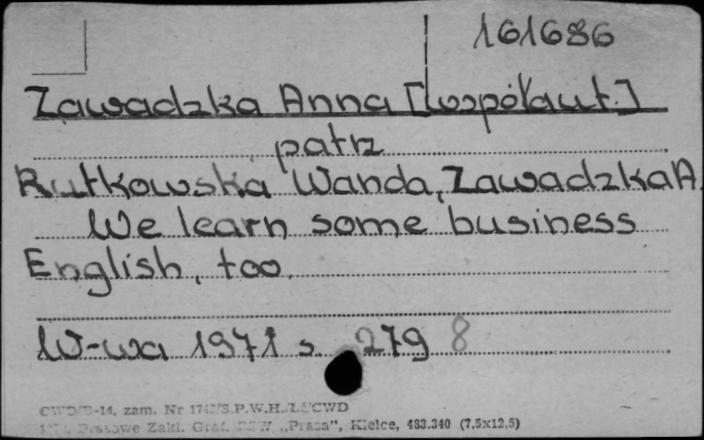 161686
Zawadzka Anna [współaut.]
patrz
Rutkowska Wanda, Zawadzka A.
We learn some business
English, too.
W-wa 1971 s. 279 8
zam. Nr S.P.W.H. CWD
Zakł. Graf. „Prasa”, Kielce, 483.340 (7,5x12,5)